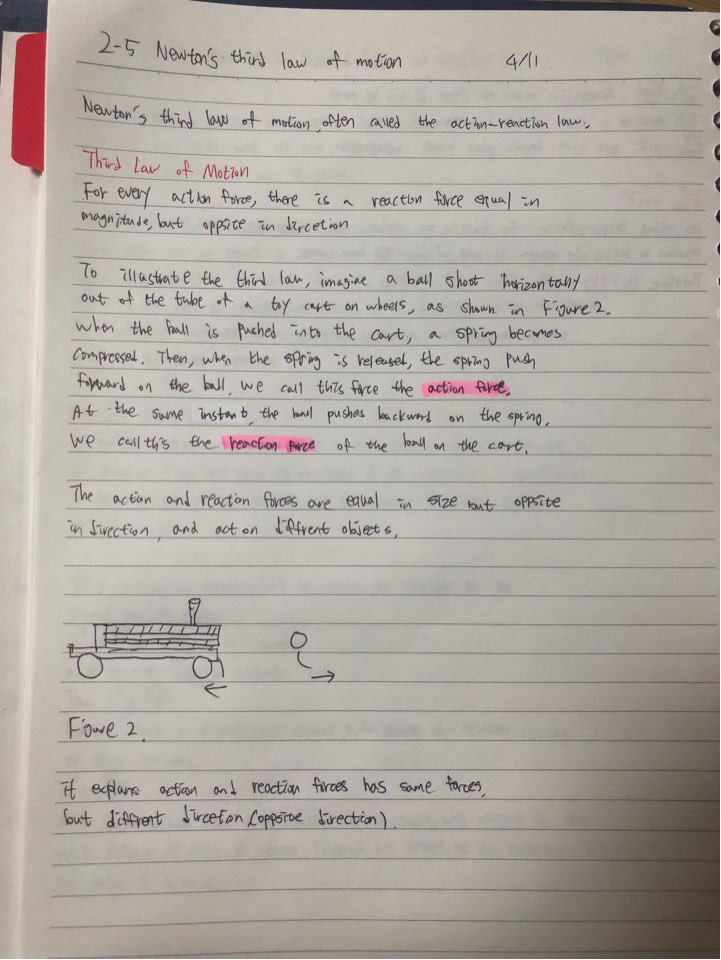 2-5 Newton's third law of motion 4/11
Newton's third law of motion, often called the action-reaction law.
Third Law of Motion
For every action force, there is a reaction force equal in
magnitude, but oppsite in dircetion
To illustrate the third law, imagine a ball shoot horizontally
out of the tube of a toy cart on wheels, as shown in Figure 2.
when the ball is pushed into the cart, a spring becomes
compressed. Then, when the spring is released, the spring push
forward on the ball, we call this force the action force.
At the same instant, the ball pushes backward on the spring.
we call this the reaction force of the ball on the cart.
The action and reaction forces are equal in size but oppsite
in direction, and act on diffrent objects.
Fioure 2.
it explans action and reaction forces has same forces,
but diffrent dirceton (oppsive direction).